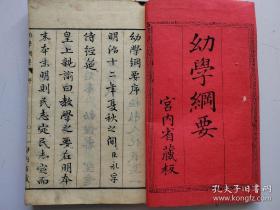 幼學綱要
宮內省藏板
幼學綱要序
明治十二年夏秋之間臣永孚
侍經筵
皇上親諭曰教學之要在明本
末本末明則民志定民志定而
孔夫子旧书网